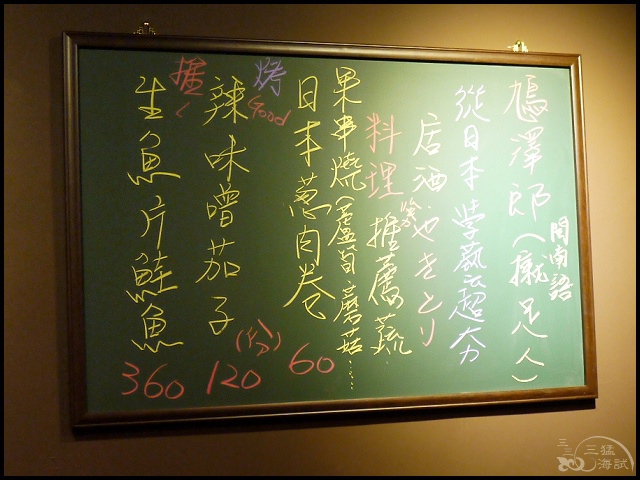 鳩澤郎(閩南語 揪足人)
從日本學藝超夯
居酒やきとり
料理等 推薦蔬
果串燒(蘆筍.蘑菇......
日本蔥肉卷 60
烤 Good
辣味噌茄子 (份) 120
推
生魚片鮭魚 360
三猛
海試